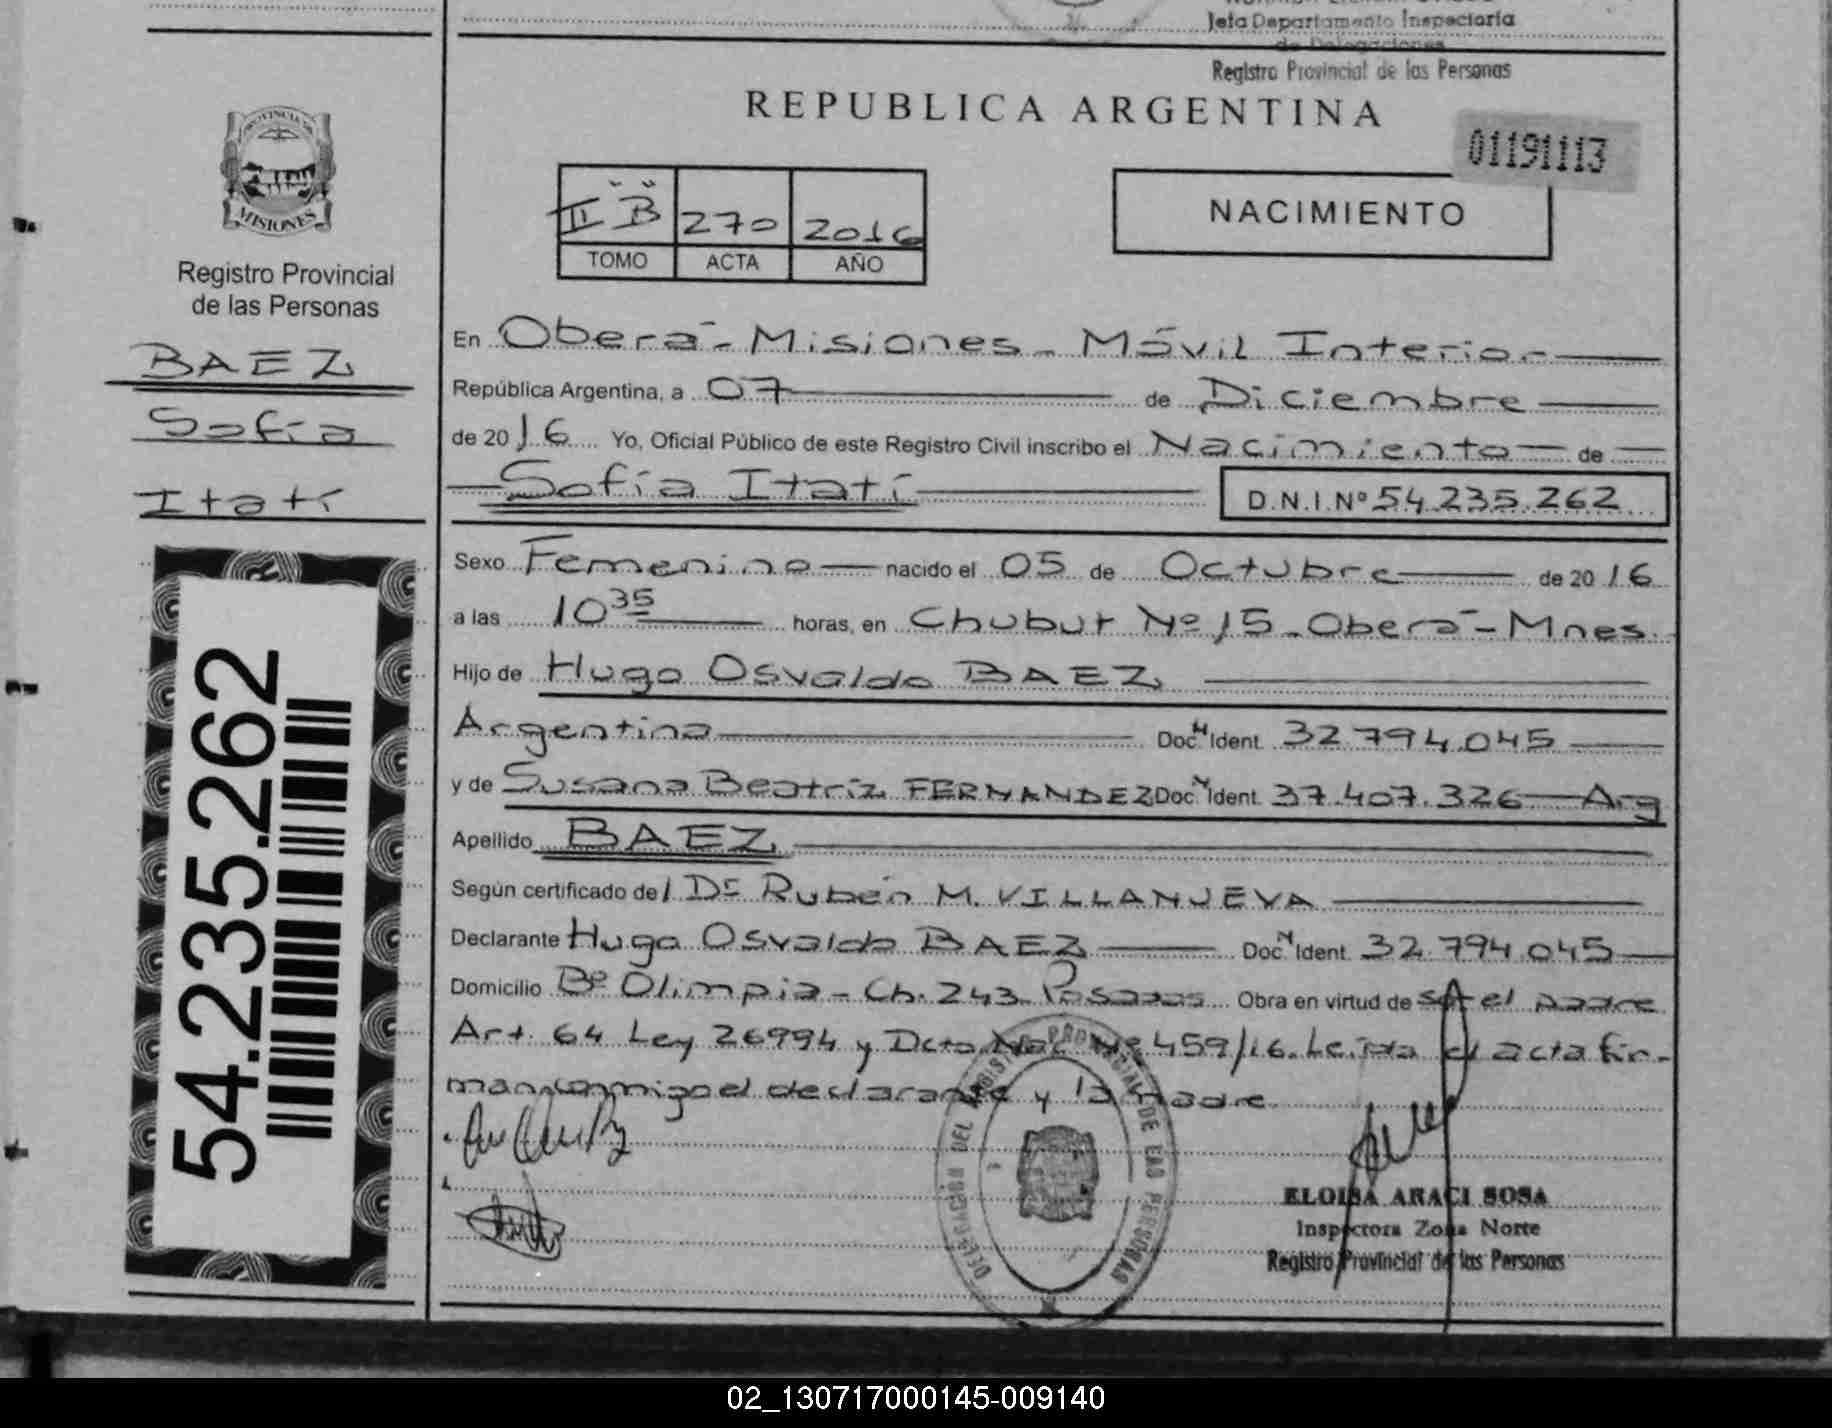 Jefa Departamento Inspectoría
de Delegaciones
Registro Provincial de las Personas
REPUBLICA ARGENTINA
01191113
PROVINCIA DE
MISIONES
Registro Provincial
de las Personas
BAEZ
Sofía
Itatí
54.235.262
II "B" 270 2016
TOMO ACTA AÑO
NACIMIENTO
En Oberá - Misiones - Móvil Interior
República Argentina, a 07 de Diciembre
de 2016 Yo, Oficial Público de este Registro Civil inscribo el Nacimiento de
Sofía Itatí D.N.I.Nº 54.235.262
Sexo Femenino nacido el 05 de Octubre de 2016
a las 10 35 horas, en Chubut Nº 15 - Oberá - Mnes.
Hijo de Hugo Osvaldo BAEZ
Argentina Doc. N Ident. 32.794.045
y de Susana Beatriz FERNANDEZ Doc. N Ident. 37.407.326 Arg
Apellido BAEZ
Según certificado del Dr Rubén M. VILLANUEVA
Declarante Hugo Osvaldo BAEZ Doc. N Ident. 32.794.045
Domicilio Bº Olimpia - Ch. 243 Posadas Obra en virtud de ser el padre
Art. 64 Ley 26994 y Dcto Nac Nº 459/16. Leída el acta fir-
man conmigo el declarante y la madre
DELEGACIÓN DEL REGISTRO PROVINCIAL DE LAS PERSONAS
ELOISA ARACI SOSA
Inspectora Zona Norte
Registro Provincial de las Personas
02_130717000145-009140